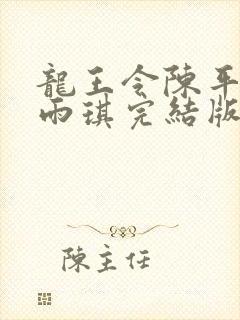 龍王令陳平
雨琪完結版
陳主任